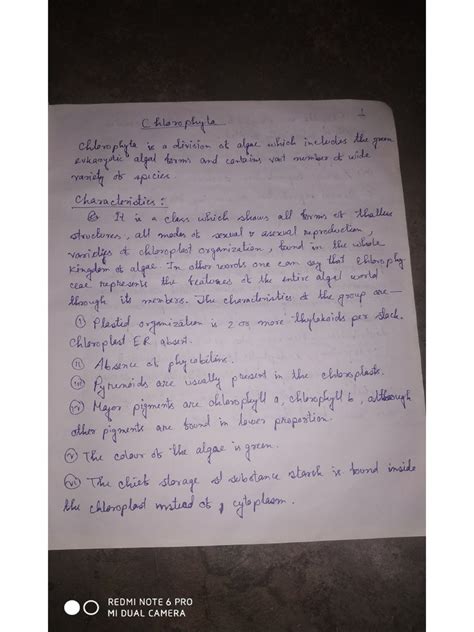 1
Chlorophyta
Chlorophyta is a division of algae which includes the green
eukaryotic algal forms and contains vast number of wide
variety of species
Characteristics :
It is a class which shows all forms of thallus
structures, all modes of sexual & asexual reproduction,
varieties of chloroplast organization, found in the whole
kingdom of algae. In other words one can say that Chlorophy
ceae represents the features of the entire algal world
through its members. The characteristics of the group are—
(i) Plastid organization is 2 or more thylakoids per stack.
Chloroplast ER absent.
(ii) Absence of phycobilins.
(iii) Pyrenoids are usually present in the chloroplasts.
(iv) Major pigments are chlorophyll a, chlorophyll b, although
other pigments are found in lower proportion.
(v) The colour of the algae is green.
(vi) The chief storage of substance starch is found inside
the chloroplast instead of cytoplasm.
REDMI NOTE 6 PRO
MI DUAL CAMERA